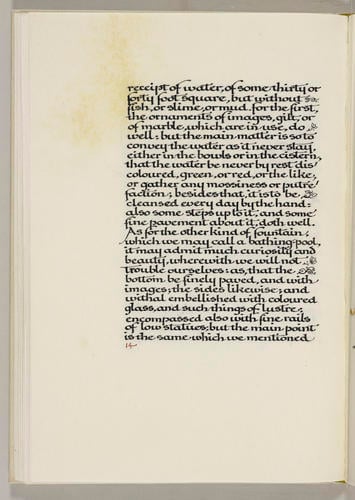 receipt of water, of some thirty or
forty foot square, but without
fish, or slime, or mud. for the first,
the ornaments of images, gilt, or
of marble, which are in use, do
well: but the main matter is so to
convey the water as it never stay,
either in the bowls or in the cistern,
that the water be never by rest dis'
coloured, green, or red, or the like;
or gather any mossiness or putre'
faction; besides that, it is to be
cleansed every day by the hand:
also some steps up to it, and some
fine pavement about it, doth well.
As for the other kind of fountain;
which we may call a bathing-pool,
it may admit much curiosity and
beauty, wherewith we will not
trouble ourselves: as, that the
bottom be finely paved, and with
images; the sides likewise; and
withal embellished with coloured
glass, and such things of lustre;
encompassed also with fine rails
of low statues: but the main point
is the same which we mentioned
14